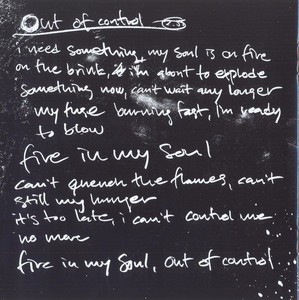 Out of control
i need something, my soul is on fire
on the brink, i'm about to explode
something now, can't wait any longer
my fuse burning fast, i'm ready
to blow
fire in my soul
can't quench the flames, can't
still my hunger
it's too late, i can't control me
no more
fire in my soul, out of control